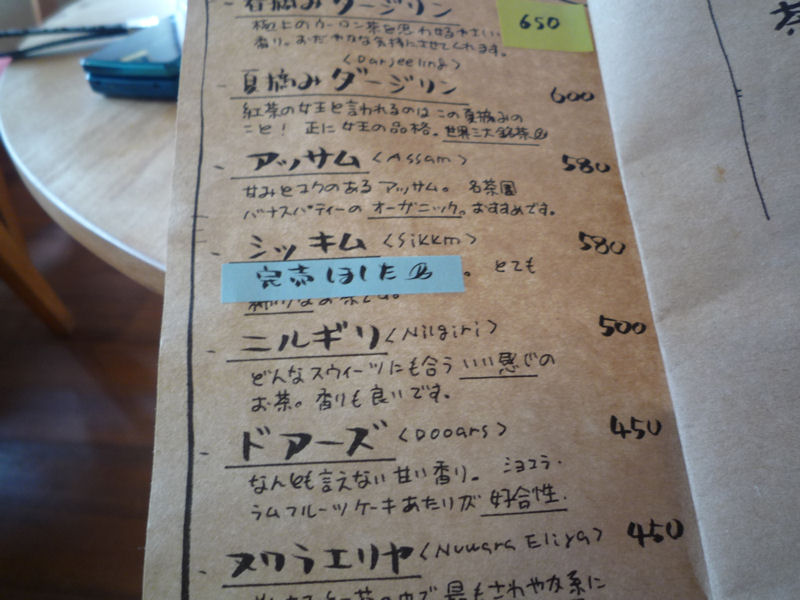 春摘みダージリン 650
極上のウーロン茶を思わせるやさしい
香り。おだやかな気持にさせてくれます。
(Darjeeling)
夏摘みダージリン 600
紅茶の女王と言われるのはこの夏摘みの
こと！ 正に女王の品格。世界三大銘茶
アッサム (Assam) 580
甘みとコクのあるアッサム。名茶園
バナスパティーのオーガニック。おすすめです。
シッキム (Sikkm) 580
完売しました 。とても
お茶です。
ニルギリ (Nilgiri) 500
どんなスウィーツにも合ういい感じの
お茶。香りも良いです。
ドアーズ (Dooars) 450
なんとも言えない甘い香り。ショコラ・
ラムフルーツケーキあたりが好合性.
ヌワラエリヤ (Nuwara Eliya) 450
最もさわやかな系に
茶